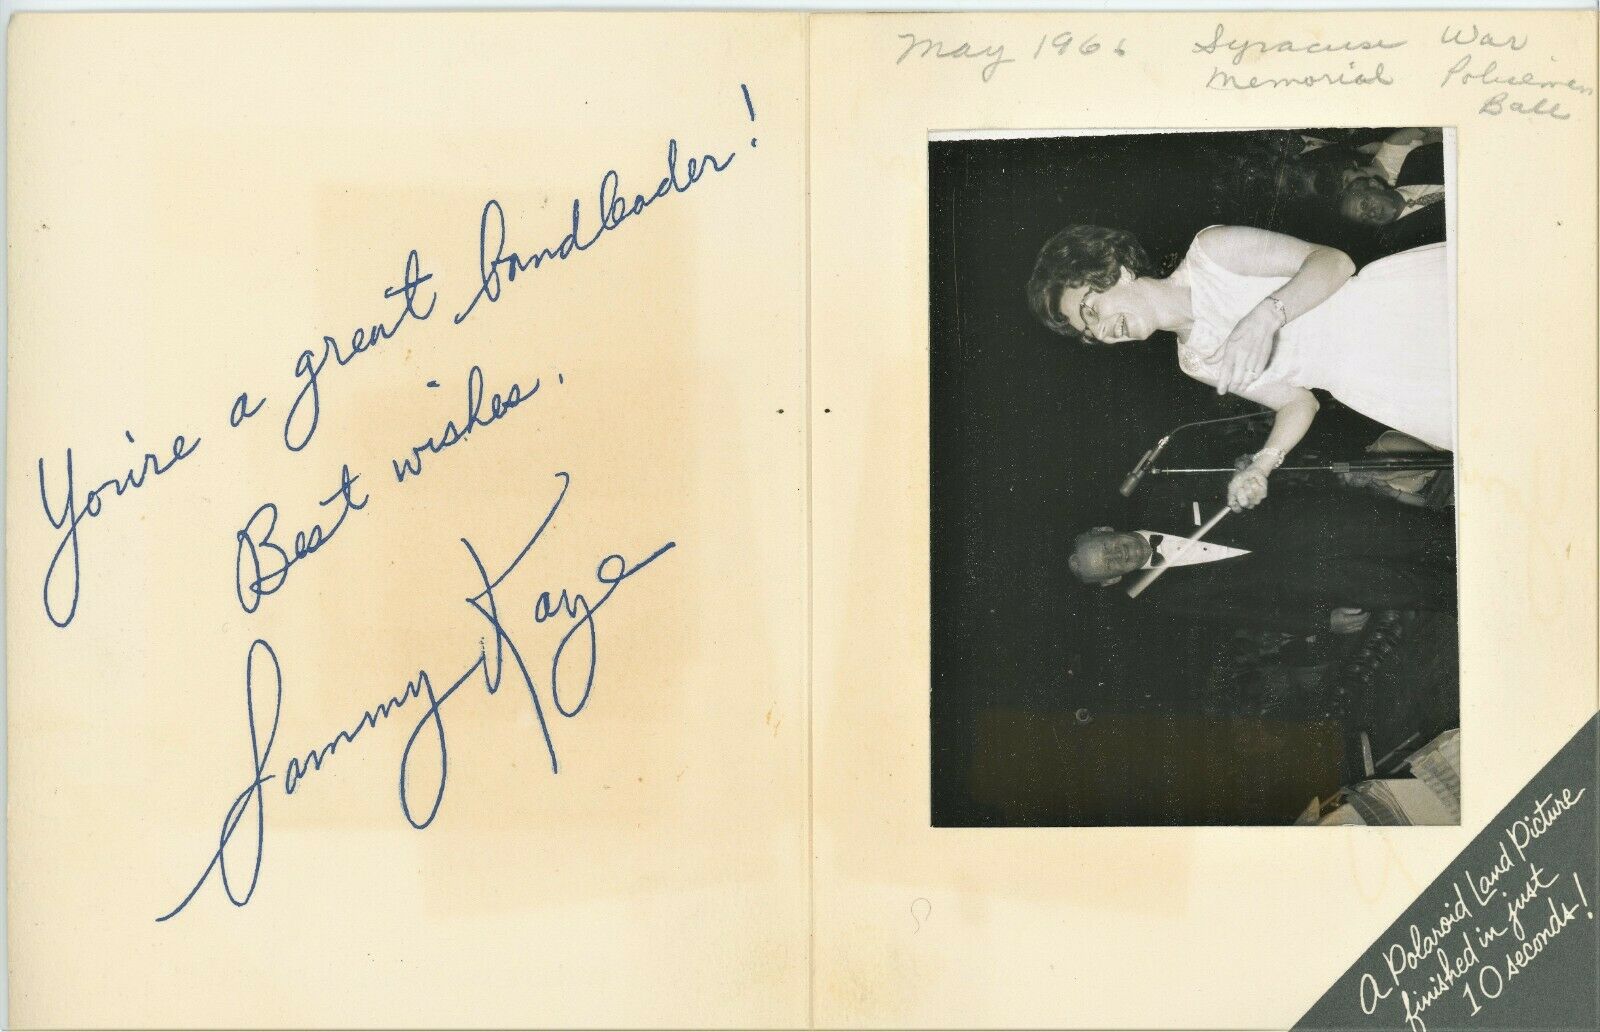 You're a great bandleader!
Best wishes.
Sammy Kaye
May 1966 Syracuse War
Memorial Policemen
Ball
A Polaroid Land Picture
finished in just
10 seconds!